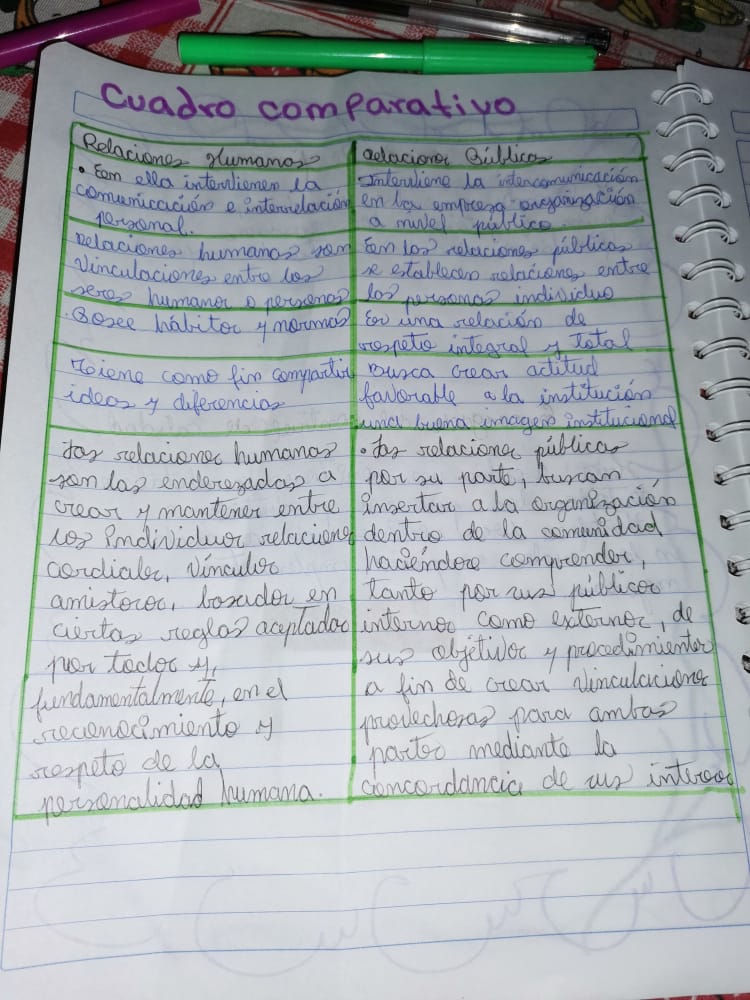 Cuadro comparativo
Relaciones Humanas
• En ella intervienen la
comunicación e interrelación
personal.
Relaciones humanas son
Vinculaciones entre los
seres humanos o personas
. Posee hábitos y normas
Tiene como fin compartir
ideas y diferencias
Las relaciones humanas
son las enderezadas a
crear y mantener entre
los Individuos relaciones
cordiales, vínculos
amistosos, basados en
ciertas reglas aceptadas
por todos y,
fundamentalmente, en el
reconocimiento y
respeto de la
personalidad humana.
Relaciones Públicas
Interviene la intercomunicación
en la empresa organización
a nivel público.
En las relaciones públicas
se establecen relaciones entre
las personas individuo
Es una relación de
respeto integral y total
Busca crear actitud
favorable a la institución
una buena imagen institucional
• Las relaciones públicas
por su parte, buscan
insertar a la organización
dentro de la comunidad
haciéndose comprender,
tanto por sus públicos
internos como externos, de
sus objetivos y procedimientos
a fin de crear vinculaciones
provechosas para ambas
partes mediante la
concordancia de sus intereses